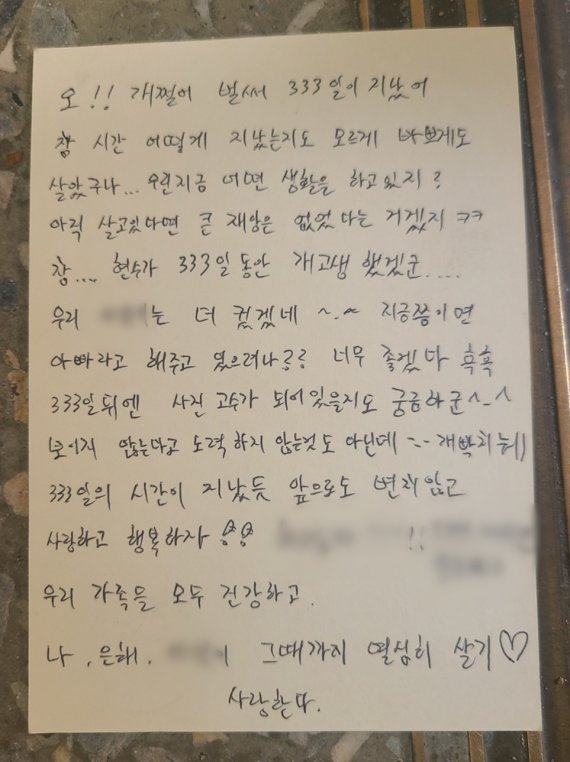 오!! 개쩔어 벌써 333일이 지났어
참 시간 어떻게 지났는지도 모르게 바쁘게도
살았구나... 우린지금 어떤 생활을 하고있지?
아직 살고있다면 큰 재앙은 없었다는 거겠지 ㅋㅋ
참... 현수가 333일 동안 개고생 했겠군....
우리 는 더 컸겠네 ~.~ 지금쯤이면
아빠라고 해주고 있으려나?? 너무 좋겠다 흑흑
333일뒤엔 사진 고수가 되어있을지도 궁금하군^-^
(보이지 않는다고 노력하지 않는것도 아닌데 -.-
333일의 시간이 지났듯 앞으로도 변치않고
사랑하고 행복하자 !!
우리 가족들 모두 건강하고.
나, 은혜, 이 그때까지 열심히 살기♡
사랑한다.